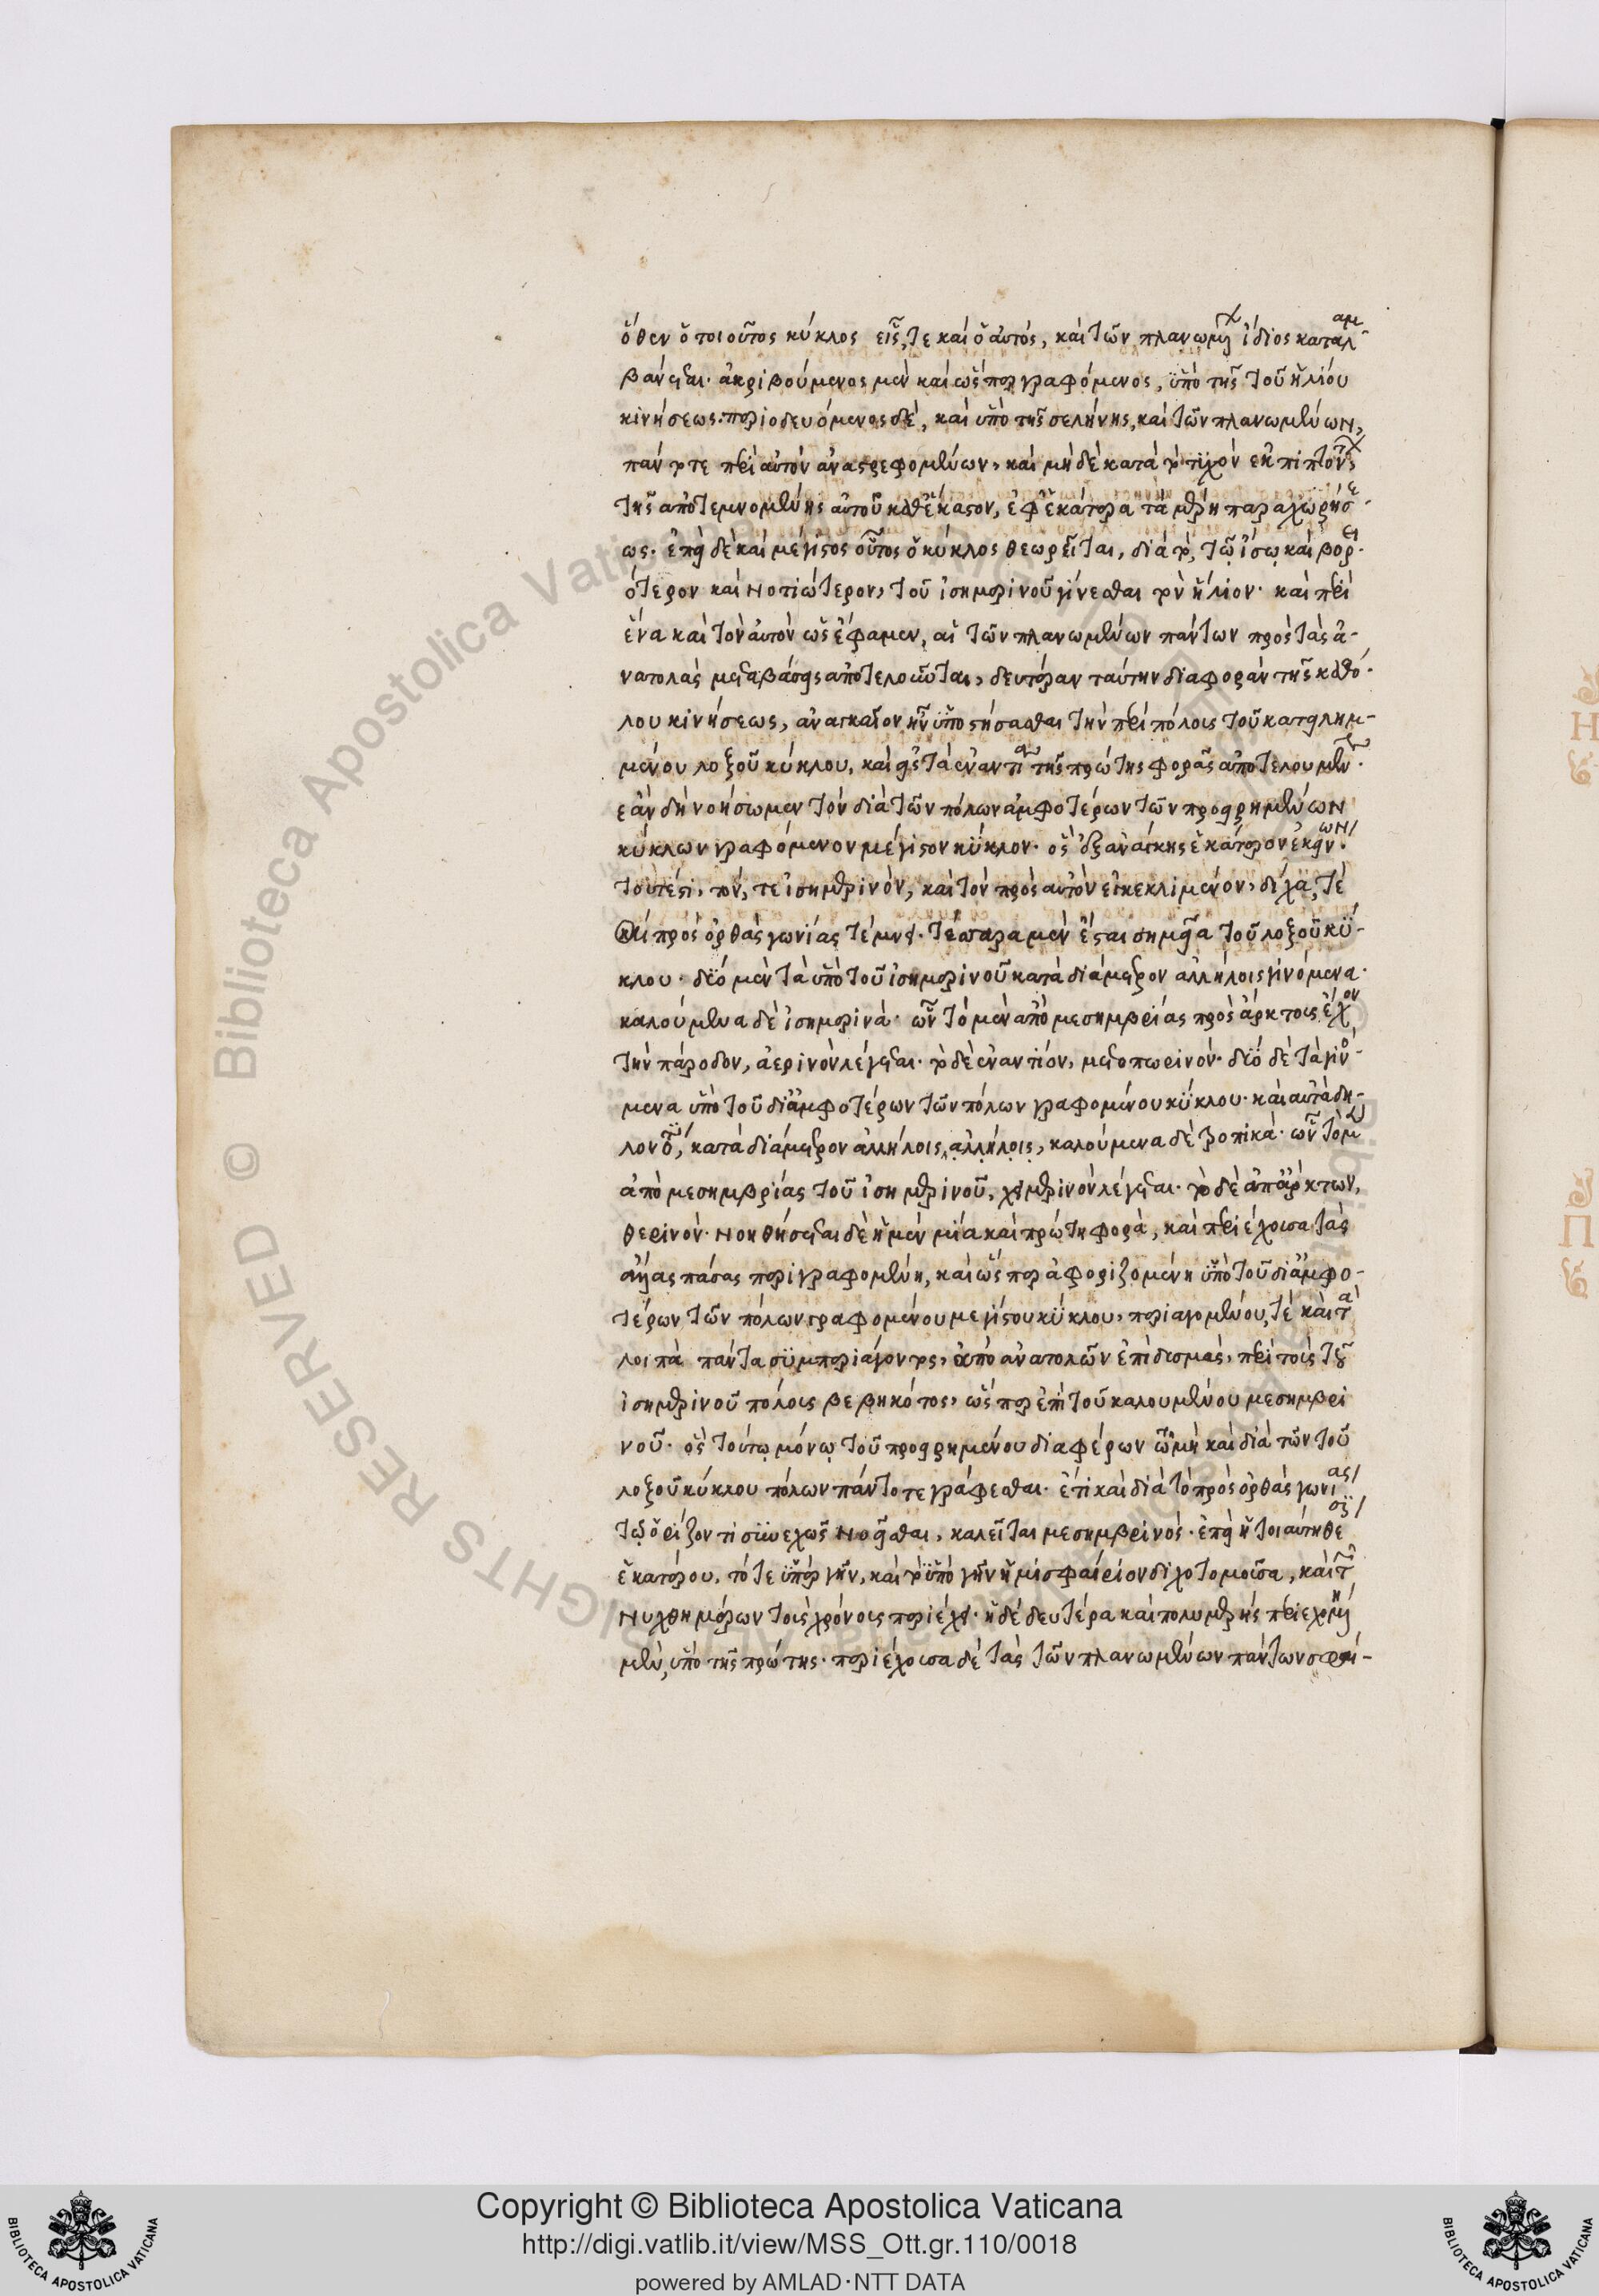 ὅθεν ὁ τοιοῦτος κύκλος εἷς, τε καὶ ὁ αὐτός, καὶ τῶν πλανωμένων ἴδιος καταλαμ-
βάνεται. ἀκριβούμενος μὲν καὶ ὥσπερ γραφόμενος, ὑπὸ τῆς τοῦ ἡλίου
κινήσεως. περιοδευόμενος δὲ, καὶ ὑπὸ τῆς σελήνης, καὶ τῶν πλανωμένων,
πάντοτε περὶ αὐτὸν ἀναστρεφομένων, καὶ μὴ δὲ κατὰ τὸ τυχὸν ἐκπιπτόντων,
τῆς ἀποτεμνομένης αὐτοῦ καθ' ἕκαστον, ἐφ' ἑκάτερα τὰ μέρη παραχωρήσε-
ως. ἐπεὶ δὲ καὶ μέγιστος οὗτος ὁ κύκλος θεωρεῖται, διὰ τὸ, τῷ ἴσῳ καὶ βορει-
ότερον καὶ νοτιώτερον, τοῦ ἰσημερινοῦ γίνεσθαι τὸν ἥλιον. καὶ περὶ
ἕνα καὶ τὸν αὐτὸν ὡς ἔφαμεν, αἱ τῶν πλανωμένων πάντων πρὸς τὰς ἀ-
νατολὰς μεταβάσεις ἀποτελοῦνται, δευτέραν ταύτην διαφορὰν τῆς καθό-
λου κινήσεως, ἀναγκαῖον ἦν ὑποστήσασθαι τὴν περὶ πόλοις τοῦ κατειλημ-
μένου λοξοῦ κύκλου, καὶ εἰς τὰ ἐναντία τῆς πρώτης φορᾶς ἀποτελουμένην.
ἐὰν δὴ νοήσωμεν τὸν διὰ τῶν πόλων ἀμφοτέρων τῶν προειρημένων
κύκλων γραφόμενον μέγιστον κύκλον. ὃς ἐξ ἀνάγκης ἑκάτερον ἐκείνων.
τουτέστι, τόν, τε ἰσημερινὸν, καὶ τὸν πρὸς αὐτὸν ἐγκεκλιμένον, δίχα, τέ
καὶ πρὸς ὀρθὰς γωνίας τέμνει. τέσσαρα μὲν ἔσται σημεῖα τοῦ λοξοῦ κύ-
κλου. δύο μὲν τὰ ὑπὸ τοῦ ἰσημερινοῦ κατὰ διάμετρον ἀλλήλοις γινόμενα.
καλούμενα δὲ ἰσημερινά. ὧν τὸ μὲν ἀπὸ μεσημβρίας πρὸς ἄρκτους ἔχον
τὴν πάροδον, ἀερινὸν λέγεται. τὸ δὲ ἐναντίον, μετοπωρινόν. δύο δὲ τὰ γινό-
μενα ὑπὸ τοῦ δι' ἀμφοτέρων τῶν πόλων γραφομένου κύκλου. καὶ αὐτὰ δη-
λονότι, κατὰ διάμετρον ἀλλήλοις, ἀλλήλοις, καλούμενα δὲ τροπικά. ὧν τὸ μὲν
ἀπὸ μεσημβρίας τοῦ ἰσημερινοῦ, χειμερινὸν λέγεται. τὸ δὲ ἀπ' ἄρκτων,
θερινόν. νοηθήσεται δὲ ἡ μὲν μία καὶ πρώτη φορὰ, καὶ περιέχουσα τὰς
ἄλλας πάσας περιγραφομένη, καὶ ὥσπερ ἀφοριζομένη ὑπὸ τοῦ δι' ἀμφο-
τέρων τῶν πόλων γραφομένου μεγίστου κύκλου, περιαγομένου, τέ καὶ τὰ
λοιπὰ πάντα συμπεριάγοντος, ἀπὸ ἀνατολῶν ἐπὶ δυσμὰς, περὶ τοὺς τοῦ
ἰσημερινοῦ πόλους βεβηκότος, ὥσπερ ἐπὶ τοῦ καλουμένου μεσημβρι
νοῦ. ὃς τούτῳ μόνῳ τοῦ προειρημένου διαφέρων ᾧ μὴ καὶ διὰ τῶν τοῦ
λοξοῦ κύκλου πόλων πάντοτε γράφεσθαι. ἔτι καὶ διὰ τὸ πρὸς ὀρθὰς γωνίας
τῷ ὁρίζοντι συνεχῶς νοεῖσθαι, καλεῖται μεσημβρινός. ἐπεὶ ἡ τοιαύτη θέσις
ἑκατέρου, τό τε ὑπὲρ γῆν, καὶ τὸ ὑπὸ γῆν ἡμισφαίριον διχοτομοῦσα, καὶ τῶν
νυχθημέρων τοὺς χρόνους περιέχει. ἡ δὲ δευτέρα καὶ πολυμερὴς περιεχομένη
μὲν, ὑπὸ τῆς πρώτης. περιέχουσα δὲ τὰς τῶν πλανωμένων πάντων σφαί-
Copyright © Biblioteca Apostolica Vaticana
http://digi.vatlib.it/view/MSS_Ott.gr.110/0018
powered by AMLAD·NTT DATA